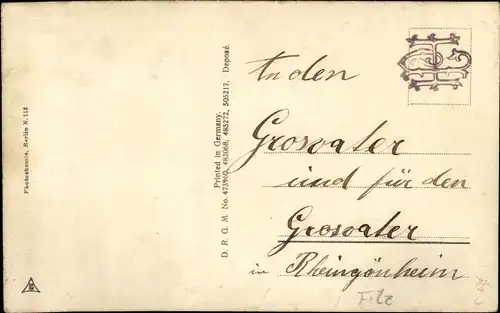 Photochemie, Berlin N. 113
D. R. G. M. No. 473960, 483068, 485272, 505217. Deposé
Printed in Germany.
An den
Grosvater
und für den
Grosvater
in Rheingönheim